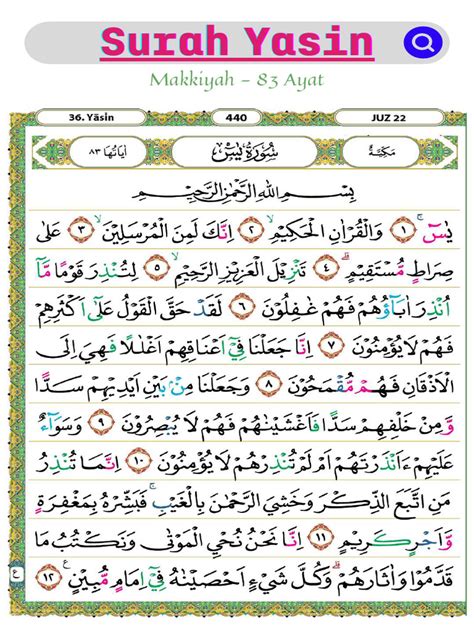 Surah Yasin
Makkiyah – 83 Ayat
36. Yāsīn 440 JUZ 22
مَكِّيَّةٌ سُوْرَةُ يٰسٓ اٰيَاتُهَا ٨٣
بِسْمِ اللّٰهِ الرَّحْمٰنِ الرَّحِيْمِ
يٰسٓ ۚ ١ وَالْقُرْاٰنِ الْحَكِيْمِ ۙ ٢ اِنَّكَ لَمِنَ الْمُرْسَلِيْنَ ۙ ٣ عَلٰى
صِرَاطٍ مُّسْتَقِيْمٍ ۗ ٤ تَنْزِيْلَ الْعَزِيْزِ الرَّحِيْمِ ۙ ٥ لِتُنْذِرَ قَوْمًا مَّآ
اُنْذِرَ اٰبَاۤؤُهُمْ فَهُمْ غٰفِلُوْنَ ٦ لَقَدْ حَقَّ الْقَوْلُ عَلٰٓى اَكْثَرِهِمْ
فَهُمْ لَا يُؤْمِنُوْنَ ٧ اِنَّا جَعَلْنَا فِيْٓ اَعْنَاقِهِمْ اَغْلٰلًا فَهِيَ اِلَى
الْاَذْقَانِ فَهُمْ مُّقْمَحُوْنَ ٨ وَجَعَلْنَا مِنْۢ بَيْنِ اَيْدِيْهِمْ سَدًّا
وَّمِنْ خَلْفِهِمْ سَدًّا فَاَغْشَيْنٰهُمْ فَهُمْ لَا يُبْصِرُوْنَ ٩ وَسَوَاۤءٌ
عَلَيْهِمْ ءَاَنْذَرْتَهُمْ اَمْ لَمْ تُنْذِرْهُمْ لَا يُؤْمِنُوْنَ ١٠ اِنَّمَا تُنْذِرُ
مَنِ اتَّبَعَ الذِّكْرَ وَخَشِيَ الرَّحْمٰنَ بِالْغَيْبِ ۚ فَبَشِّرْهُ بِمَغْفِرَةٍ
وَّاَجْرٍ كَرِيْمٍ ١١ اِنَّا نَحْنُ نُحْيِ الْمَوْتٰى وَنَكْتُبُ مَا
قَدَّمُوْا وَاٰثَارَهُمْ ۗ وَكُلَّ شَيْءٍ اَحْصَيْنٰهُ فِيْٓ اِمَامٍ مُّبِيْنٍ ۧ ١٢
ع